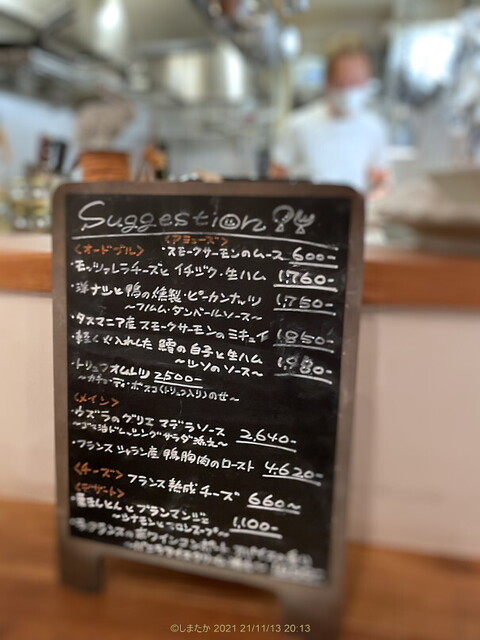 Suggestion
<アミューズ>
<オードブル> ・スモークサーモンのムース 600-
・モッツァレラチーズと イチヂク・生ハム 1,760-
・洋ナシと鴨の燻製・ピーカンナッツ 1,750-
～フルム・ダンベールソース～
・タスマニア産スモークサーモンのミキュイ 1,850-
・軽く火入れした 鱈の白子と生ハム 1,980-
～ソースのソース～
・トリュフオムレツ 2500-
<メイン>
・ウズラのグリエ マデラソース 2,640-
～ゴマ油ドレッシングサラダ添え～
・フランス シャラン産 鴨胸肉のロースト 4,620-
<チーズ> フランス熟成チーズ 660～
<デザート>
とブランマンジェ 1,100-
～シナモンと
©しまたか 2021 21/11/13 20:13